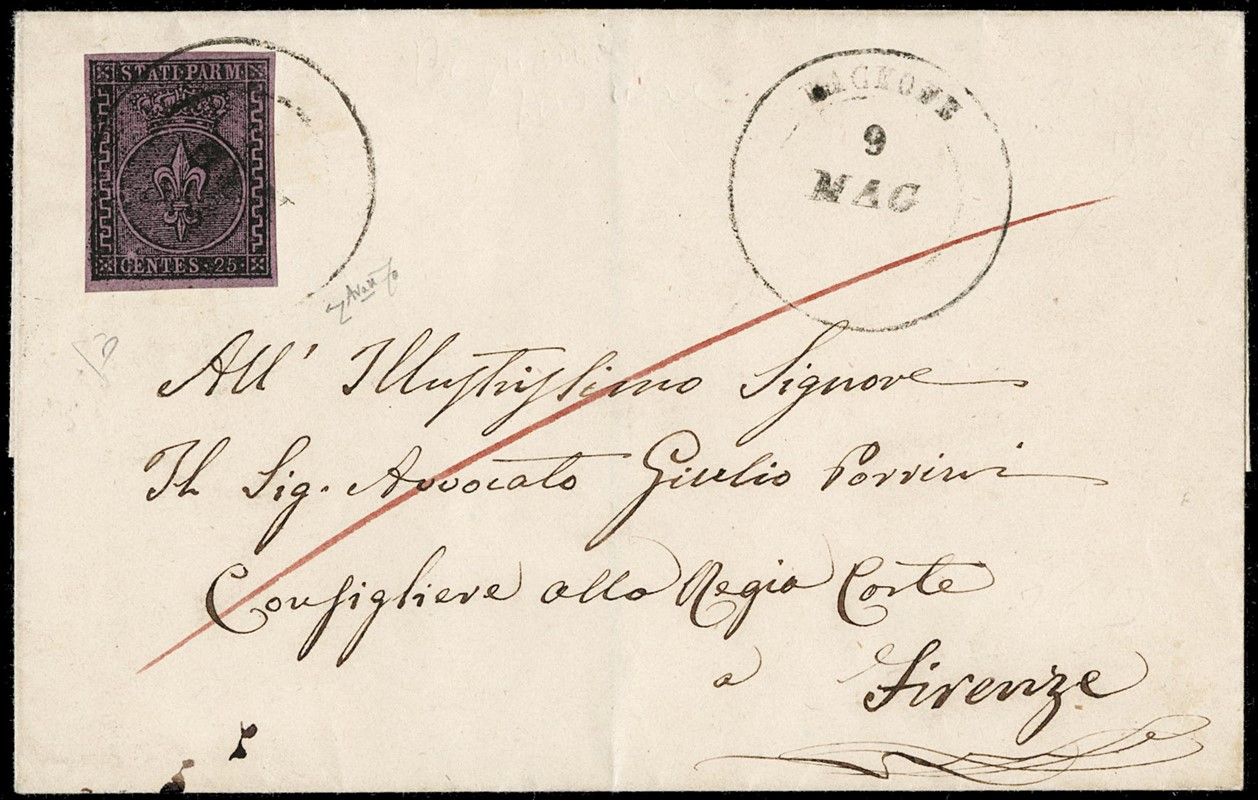 STATI PARM
CENTES. 25
BAGNONE
9
MAG
All' Illustrissimo Signore
Il Sig. Avvocato Giulio Porrini
Consigliere alla Regia Corte
a
Firenze